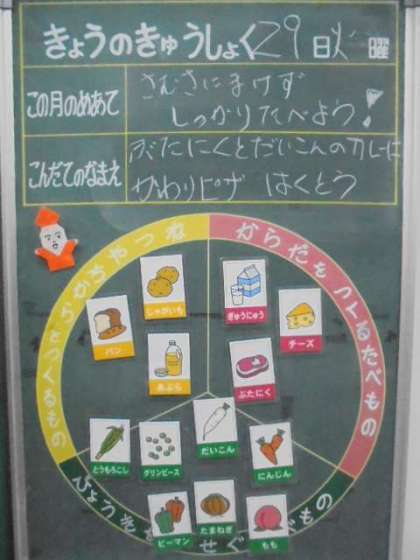 きょうのきゅうしょく 29 日 火 曜
この月のめあて
さむさにまけず
しっかりたべよう!
こんだてのなまえ
ぶたにくとだいこんのカレーに
かわりピザ はくとう
ねつやちからをつくるもの
からだをつくるたべもの
じゃがいも
ぎゅうにゅう
パン
チーズ
あぶら
ぶたにく
とうもろこし
グリンピース
だいこん
にんじん
ピーマン
たまねぎ
もも
びょうきを
せぐ
もの